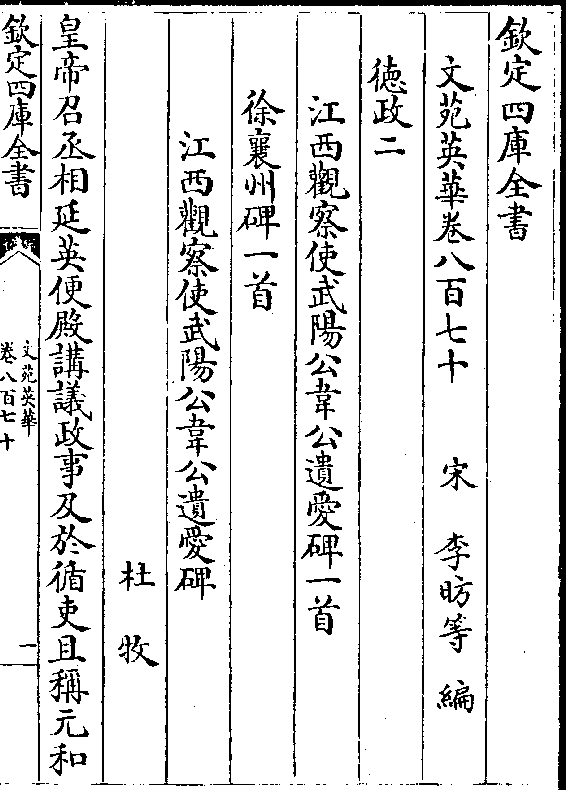 欽定四庫全書
文苑英華卷八百七十　宋　李昉等　編
德政二
江西觀察使武陽公韋公遺愛碑一首
徐襄州碑一首
江西觀察使武陽公韋公遺愛碑
杜牧
皇帝召丞相延英便殿講議政事及於循吏且稱元和
欽定四庫全書
文苑英華
卷八百七十
一